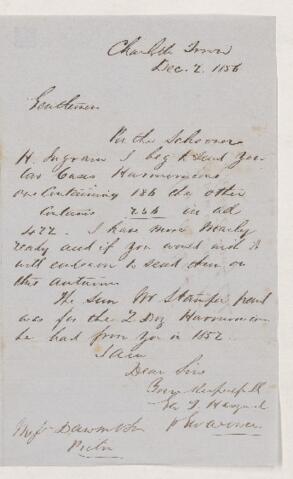 Charlotte Town
Dec. 2. 1856
Gentlemen
Per the Schooner
H. Ingram I beg to send you
two Cases Harmonicons
one Containing 186 the other
Contains 236 in all
422. I have more nearly
ready and if you would wish it
will endeavor to send them on
this autumn
The sum Mr Stamper paid
was for the 2 Doz Harmonicons
he had from you in 1852.
I am
Dear Sirs
Yours Respectfully
Messrs Dawson
Pictou